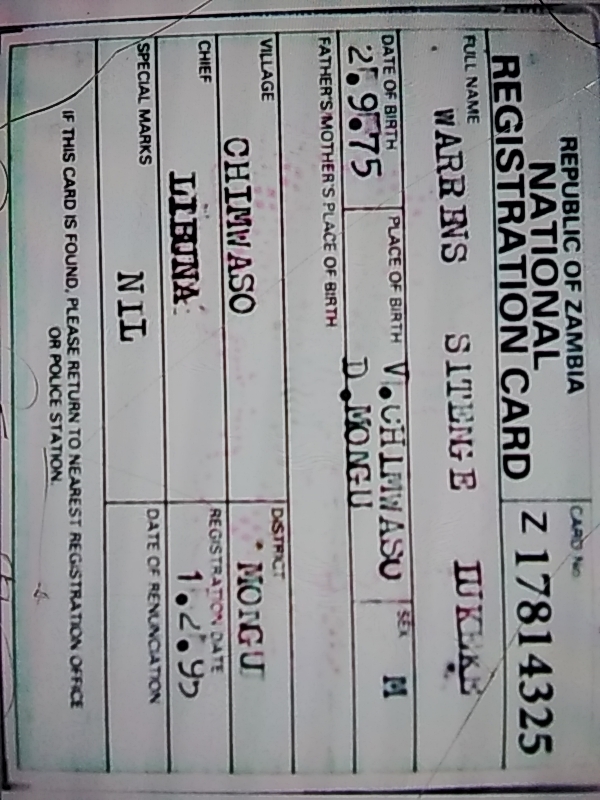 REPUBLIC OF ZAMBIA
NATIONAL
REGISTRATION CARD
CARD No
Z 17814325
FULL NAME
WARRENS SITENGE LUKEKE
DATE OF BIRTH
2.9.75
PLACE OF BIRTH
V.CHIMWASO
D.MONGU
SEX
M
FATHER'S/MOTHER'S PLACE OF BIRTH
VILLAGE
CHIMWASO
DISTRICT
MONGU
CHIEF
REGISTRATION DATE
1.2.95
SPECIAL MARKS
NIL
DATE OF RENUNCIATION
IF THIS CARD IS FOUND, PLEASE RETURN TO NEAREST REGISTRATION OFFICE
OR POLICE STATION.